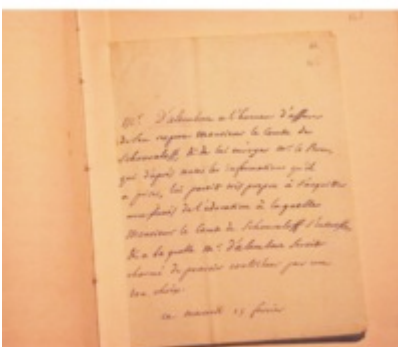 Mr. D'alembert a l'honneur d'assurer
de son respect Monsieur le Comte de
Schouvaloff, & de lui envoyer Mr. le
qui d'après toutes les informations qu'il
a prises, lui paroît très propre à s'acquitter
de l'éducation à laquelle
Monsieur le Comte de Schouvaloff s'intéresse,
& à laquelle Mr. D'alembert seroit
charmé de pouvoir contribuer par un
bon choix.
ce mercredi 15 février